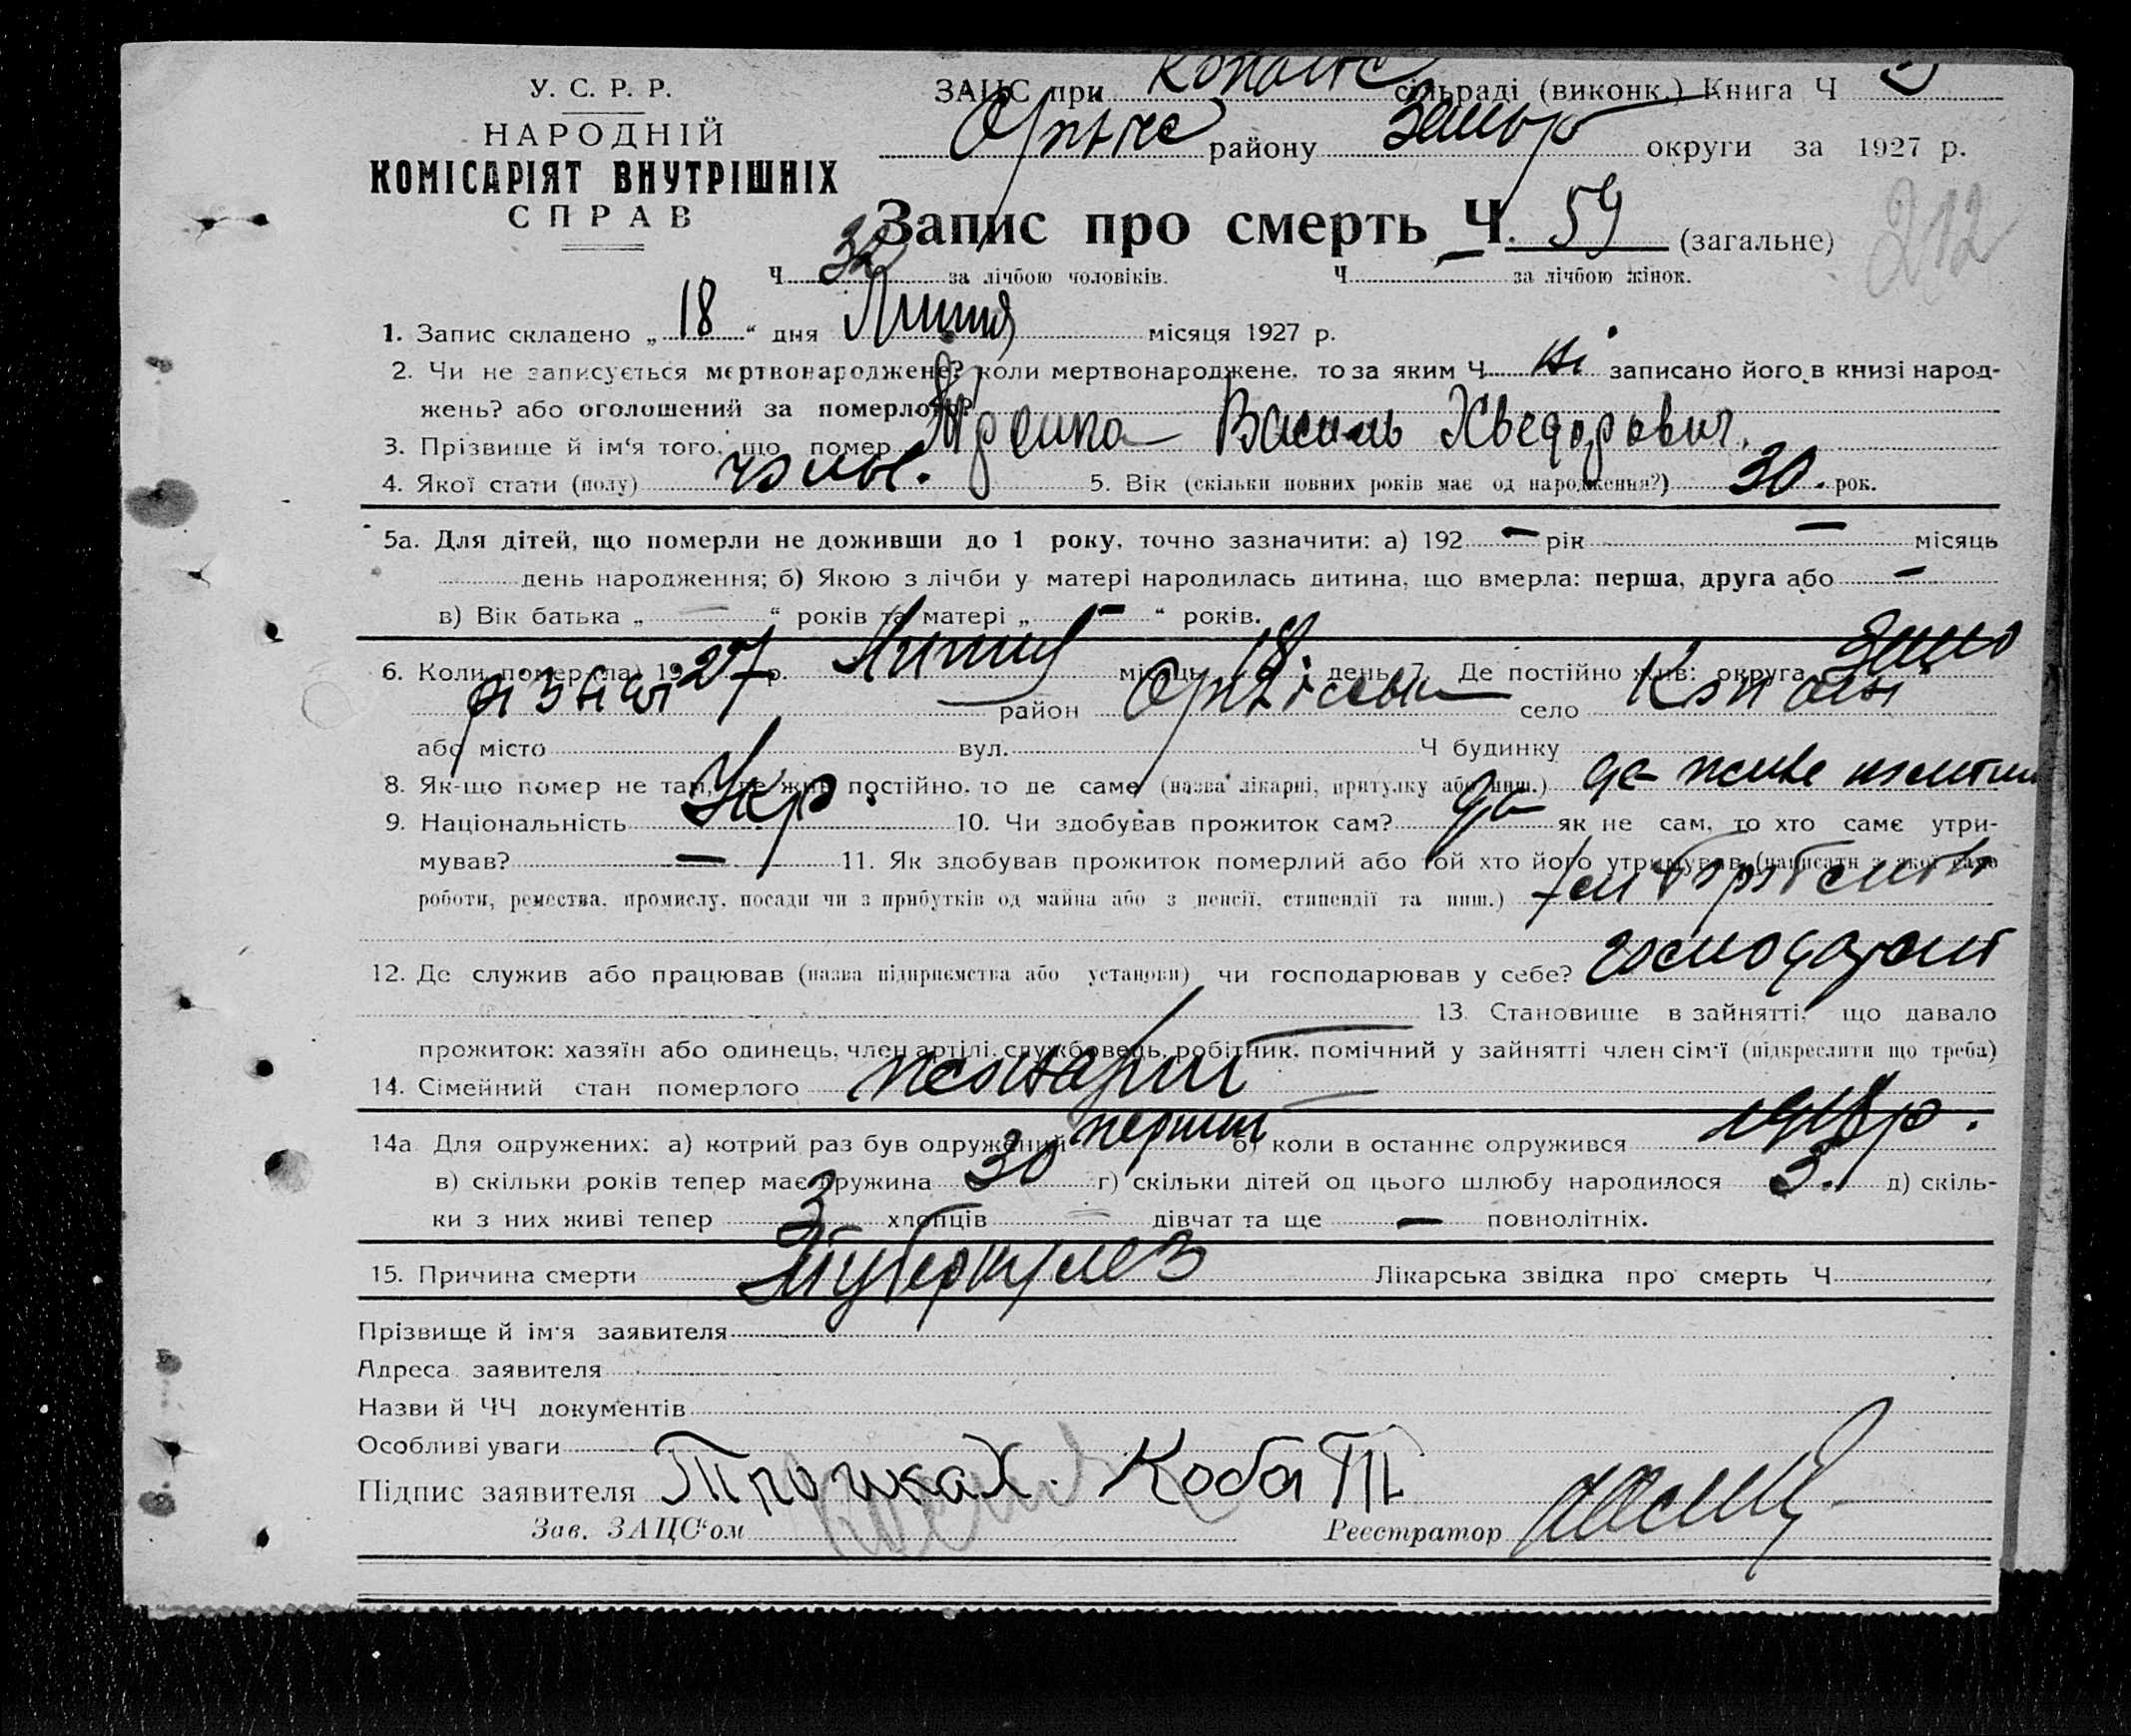 У. С. Р. Р.
НАРОДНІЙ
КОМІСАРІЯТ ВНУТРІШНІХ
СПРАВ
ЗАЦС при сільраді (виконк.) Книга Ч
району округи за 1927 р.
Запис про смерть Ч. 59 (загальне)
212
Ч 32 за лічбою чоловіків. Ч — за лічбою жінок.
1. Запис складено „ 18 “ дня Липня місяця 1927 р.
2. Чи не записується мертвонароджене? коли мертвонароджене, то за яким Ч ні записано його в книзі народ-
жень? або оголошений за померлого?
3. Прізвище й ім'я того, що помер Василь Хведорович.
4. Якої стати (полу) чолов. 5. Вік (скільки повних років має од народження?) 30. рок.
5а. Для дітей, що померли не доживши до 1 року, точно зазначити: а) 192 — рік — місяць
день народження; б) Якою з лічби у матері народилась дитина, що вмерла: перша, друга або —
в) Вік батька „ — “ років та матері „ — “ років.
6. Коли помер(ла) 1927 р. Липня місяць 18 день 7. Де постійно жив: округа
район село
або місто вул. Ч будинку
8. Як-що помер не там, де жив постійно, то де саме (назва лікарні, притулку або инш.) де живе
9. Національність Укр. 10. Чи здобував прожиток сам? да як не сам, то хто саме утри-
мував? — 11. Як здобував прожиток померлий або той хто його утримував (написати з якої саме
роботи, ремества, промислу, посади чи з прибутків од майна або з пенсії, стипендії та инш.)
12. Де служив або працював (назва підприємства або установи) чи господарював у себе?
13. Становище в зайнятті, що давало
прожиток: хазяїн або одинець, член артілі, службовець, робітник, помічний у зайнятті член сім'ї (підкреслити що треба)
14. Сімейний стан померлого жонатий
14а Для одружених: а) котрий раз був одружений перший б) коли в останнє одружився 1918 р.
в) скільки років тепер має дружина 30 г) скільки дітей од цього шлюбу народилося 3. д) скіль-
ки з них живі тепер 3 хлопців — дівчат та ще — повнолітніх.
15. Причина смерти Туберкулез Лікарська звідка про смерть Ч
Прізвище й ім'я заявителя
Адреса заявителя
Назви й ЧЧ документів
Особливі уваги
Підпис заявителя Коба
Зав. ЗАЦС'ом Реєстратор